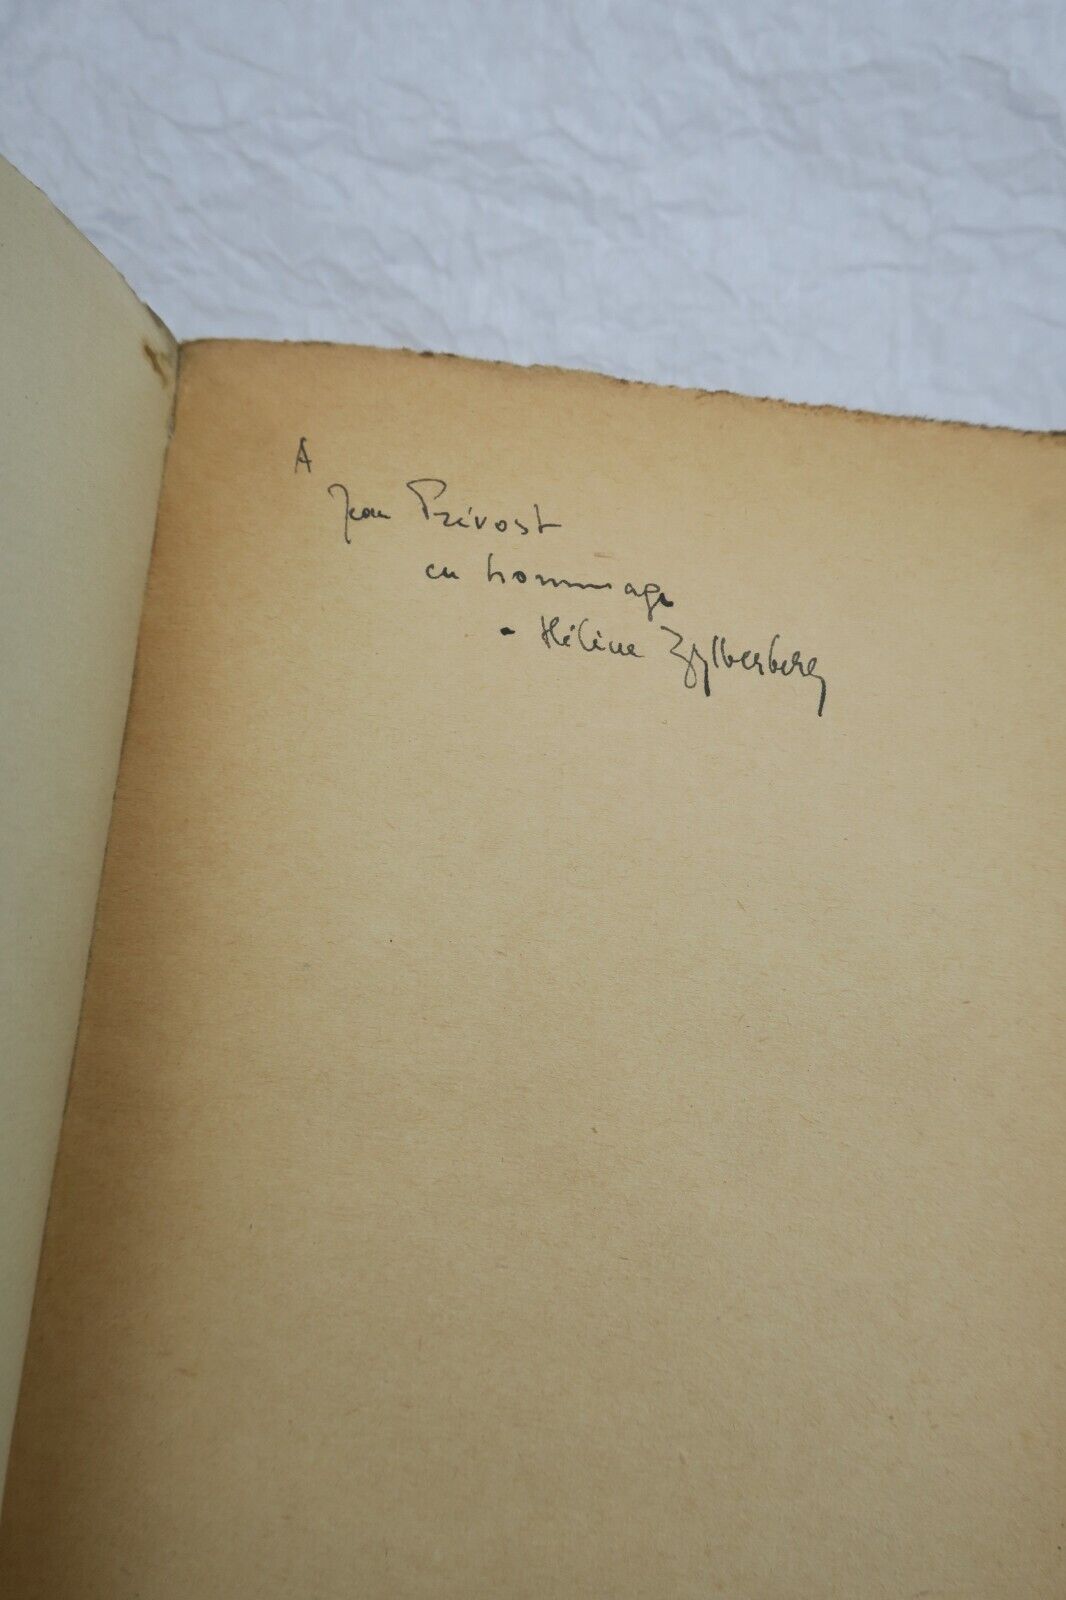 A
Jean Prévost
en hommage
Hélène Zylberberg